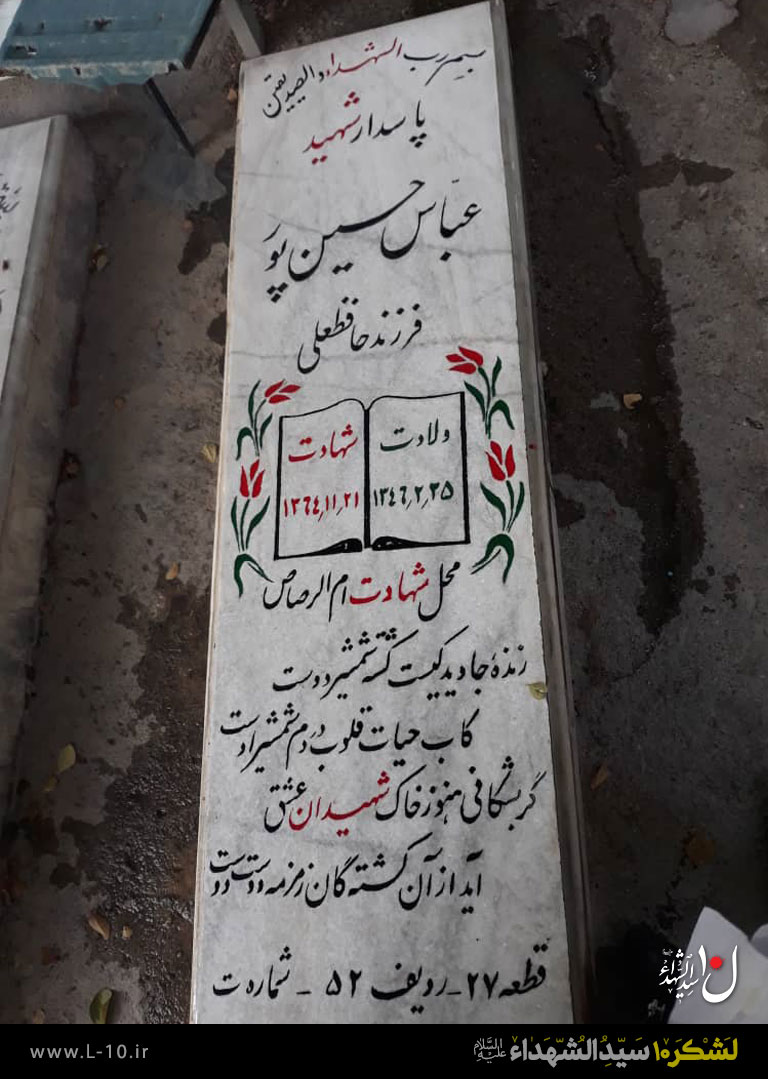 بسم رب الشهداء و الصدیقین
پاسدار شهید
عباس حسین پور
فرزند حافظعلی
ولادت
۱۳۴۶٫۲٫۲۵
شهادت
۱۳۶۴٫۱۱٫۲۱
محل شهادت ام الرصاص
زنده جاوید کیست کشته شمشیر دوست
کاب حیات قلوب در دم شمشیر اوست
گر بشکافی هنوز خاک شهیدان عشق
آید از آن کشته گان زمزمه دوست دوست
قطعه ۲۷ - ردیف ۵۲ - شماره ت
ل۱۰ن سیدالشهداء
www.L-10.ir
لشکر۱۰ سیدالشهداء علیه السلام